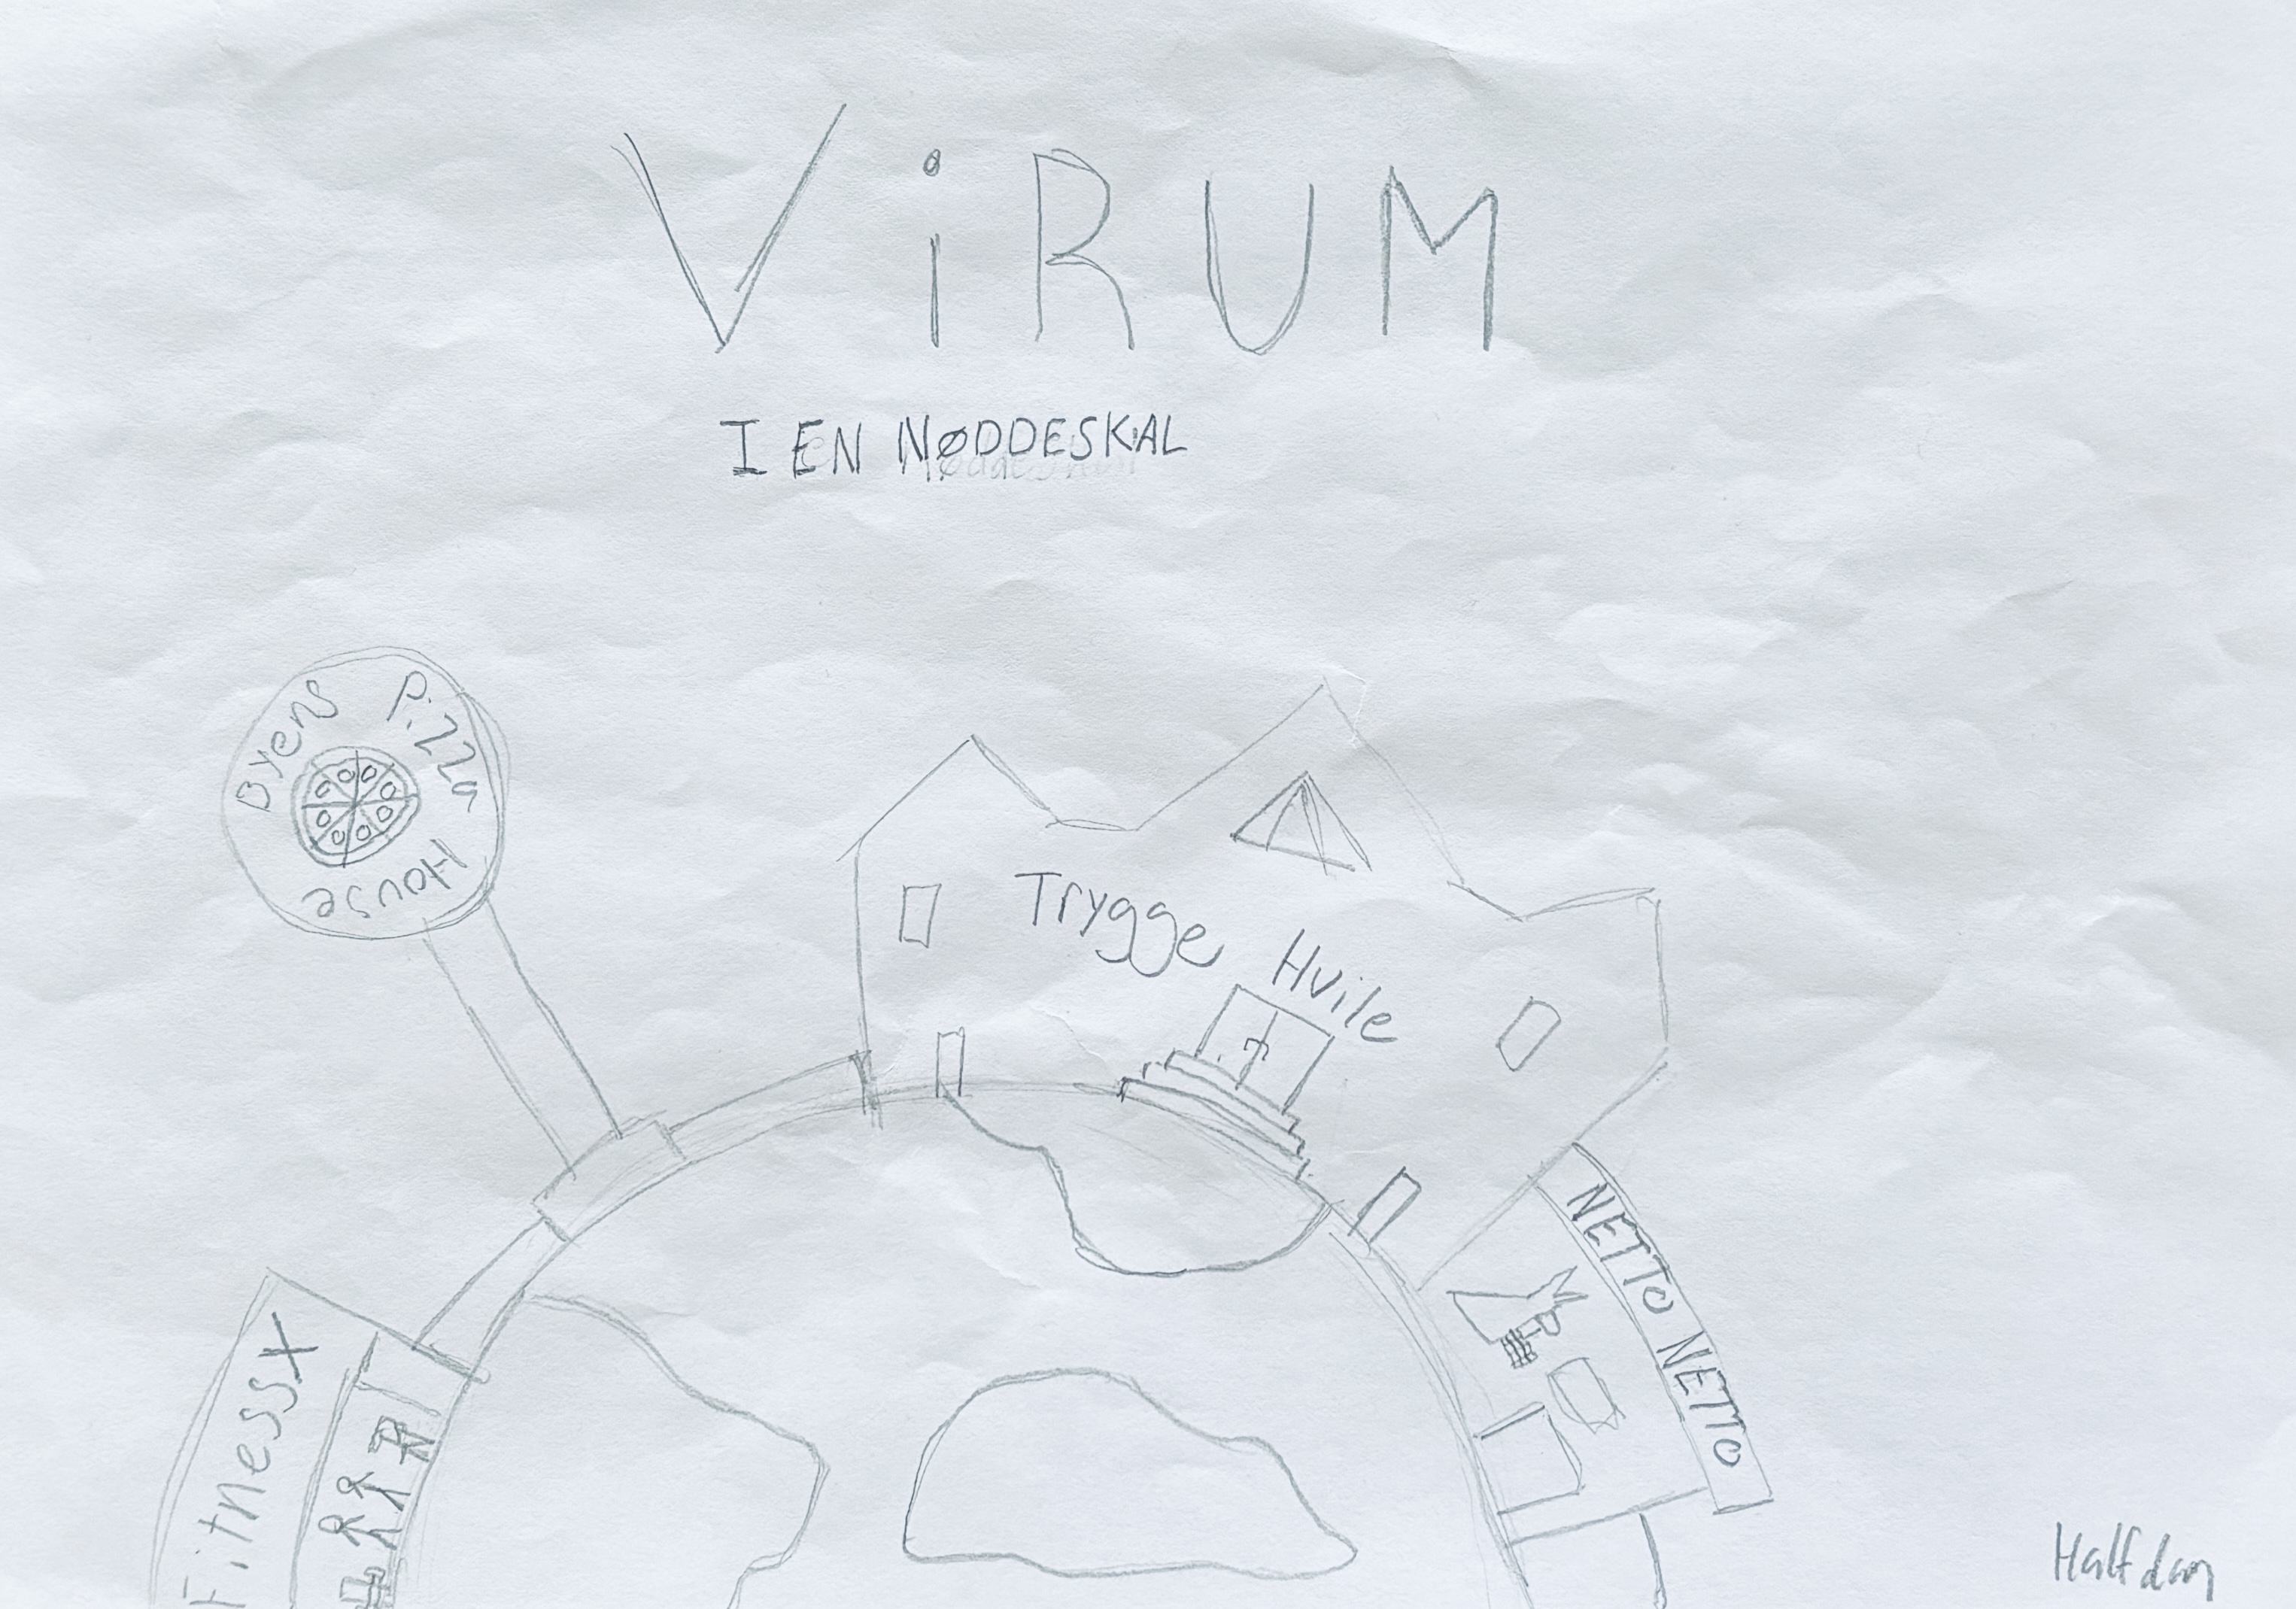 ViRUM
I EN NØDDESKAL
Byens Pizza House
Trygge Hvile
NETTO NETTO
FitnessX
Halfdan